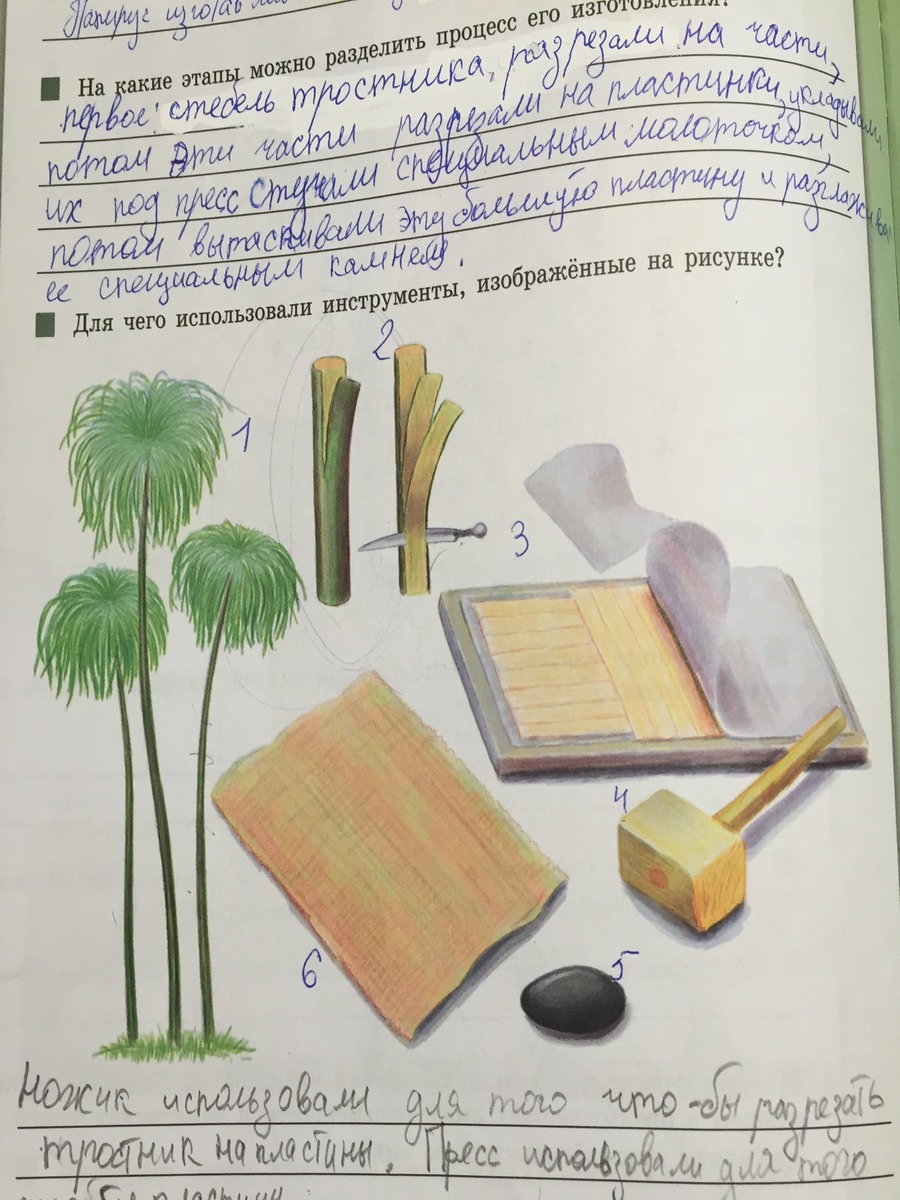 Папирус изготавли
На какие этапы можно разделить процесс его изготовления?
первое: стебель тростника, разрезали на части,
потом эти части разрезали на пластинки, укладывали
их под пресс стучали специальным молоточком,
потом вытаскивали эту большую пластину и разглаживали
ее специальным камнем.
Для чего использовали инструменты, изображённые на рисунке?
2
1
3
4
5
6
Ножик использовали для того что-бы разрезать
тростник на пластины. Пресс использовали для того